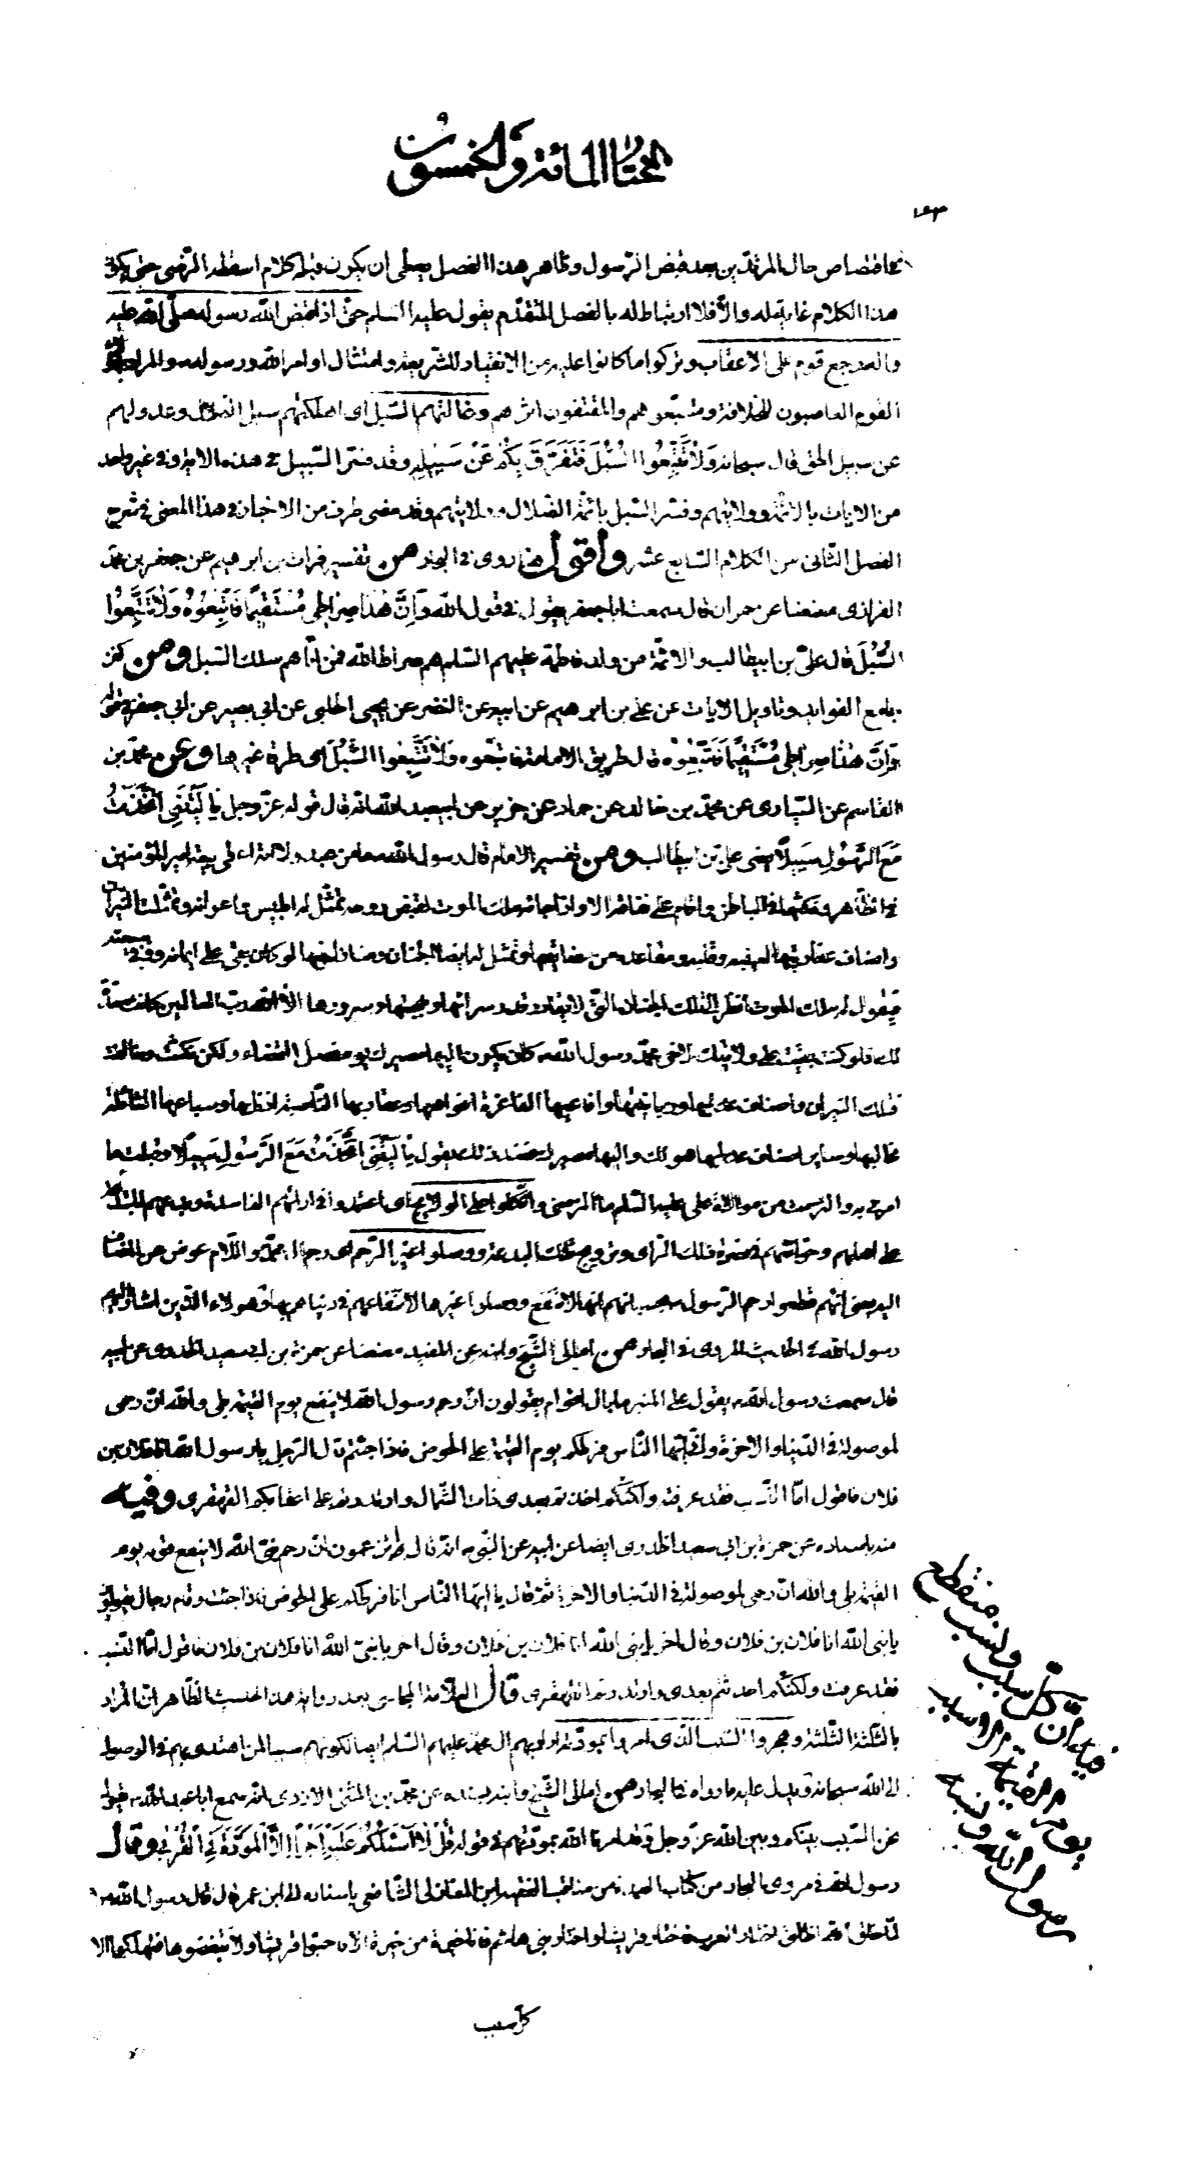 المختار المائة والخمسون
١٤٣
في اقتصاص حال المرتدين بعد قبض الرسول وظاهر هذا الفصل يعطى ان يكون قبله كلام اسقطه الرضى حتى يكون
هذا الكلام غاية له والا فلا ارتباط له بالفصل المتقدم يقول عليه السلم حتى اذا قبض الله رسوله صلى الله عليه
واله رجع قوم على الاعقاب وتركوا ما كانوا عليه من الانقياد للشريعة وامتثال اوامر الله ورسوله والمراد
القوم الغاصبون للخلافة ومتبعوهم والمقتفون اثرهم وغالتهم السبل اى اهلكتهم سبل الضلال وعدولهم
عن سبيل الحق قال سبحانه وَلَا تَتَّبِعُوا السُّبُلَ فَتَفَرَّقَ بِكُمْ عَنْ سَبِيلِهِ وقد فسر السبيل في هذه الاية وفي غير واحد
من الايات بالائمة وولايتهم وفسر السبل بائمة الضلال وولايتهم وقد مضى طرف من الاخبار في هذا المعنى في شرح
الفصل الثانى من الكلام السابع عشر واقول هنا روى في البحار من تفسير فرات بن ابرهيم عن جعفر بن محمد
الفزارى معنعنا عن حمران قال سمعت ابا جعفر يقول في قول الله وَاَنَّ هٰذَا صِرَاطِى مُسْتَقِيمًا فَاتَّبِعُوهُ وَلَا تَتَّبِعُوا
السُّبُلَ قال على بن ابيطالب والائمة من ولد فاطمة عليهم السلم هم صراط الله فمن اتاهم سلك السبل ومن كنز
جامع الفوايد وتاويل الايات عن على بن ابرهيم عن ابيه عن النضر عن يحيى الحلبى عن ابى بصير عن ابى جعفر في قوله
وَاَنَّ هٰذَا صِرَاطِى مُسْتَقِيمًا فَاتَّبِعُوهُ قال طريق الامامة فاتبعوه وَلَا تَتَّبِعُوا السُّبُلَ اى طرقا غيرها وعن محمد بن
القاسم عن السيارى عن محمد بن خالد عن حماد عن حريز عن ابيعبد الله انه قال قوله عز وجل يَا لَيْتَنِى اتَّخَذْتُ
مَعَ الرَّسُولِ سَبِيلًا يعنى على بن ابيطالب ومن تفسير الامام قال رسول الله ما من عبد ولا امة اعطى بيعة امير المؤمنين
في الظاهر ونكثها في الباطن واقام على نفاقه الا واذا جائه ملك الموت لقبض روحه تمثل له ابليس واعوانه وتمثلت النيران
واصناف عفاريتها لعينيه وقلبه ومقاعده من مضايقها وتمثل له ايضا الجنان ومنازله فيها لو كان بقى على ايمانه ووفى ببيعته
فيقول له ملك الموت انظر الى تلك الجنان التى لا يقادر قدر سرائها وبهجتها وسرورها الا الله رب العالمين كانت معدة
لك فلو كنت بقيت على ولايتك لاخى محمد رسول الله كان يكون اليها مصيرك يوم فصل القضاء ولكن نكثت وخالفت
فتلك النيران واصناف عذابها وزبانيتها وافاعيها الفاغرة افواهها وعقاربها الناصبة اذنابها وسباعها الشائلة
مخالبها وساير اصناف عذابها هو لك واليها مصيرك فعند ذلك يقول يَا لَيْتَنِى اتَّخَذْتُ مَعَ الرَّسُولِ سَبِيلًا وقبلت ما
امرنى به والتزمت من موالاة على عليه السلم ما الزمنى واتكلوا على الولايج اى اعتمدوا في ارائهم الفاسدة
على اهليهم وخواصهم في نصرة تلك الراى وترويج تلك البدعة ووصلوا غير الرحم اى رحم ال محمد واللام عوض عن المضاف
اليه يعنى انهم قطعوا رحم الرسول بحسبانهم انها لا تنفع ووصلوا غيرها لانتفاعهم في دنياهم بها وهؤلاء الذين اشار اليهم
رسول الله في الحديث المروى في البحار من امالى الشيخ وابنه عن المفيد معنعنا عن حمزة بن ابى سعيد الخدرى عن ابيه
قال سمعت رسول الله يقول على المنبر ما بال اقوام يقولون ان رحم رسول الله لا ينفع يوم القيمة بلى والله ان رحمى
لموصولة في الدنيا والاخرة وانى ايها الناس فرطكم يوم القيمة على الحوض فاذا جئتم قال الرجل يا رسول الله انا فلان بن
فلان فاقول اما النسب فقد عرفته ولكنكم اخذتم بعدى ذات الشمال وارتددتم على اعقابكم القهقرى وفيه
منه باسناده عن حمزة بن ابى سعيد الخدرى ايضا عن ابيه عن النبى انه قال اتزعمون ان رحم نبى الله لا ينفع قومه يوم
القيمة بلى والله ان رحمى لموصولة في الدنيا والاخرة ثم قال يا ايها الناس انا فرطكم على الحوض فاذا جئت وقام رجال يقولون
يا نبى الله انا فلان بن فلان وقال اخر يا نبى الله انا فلان بن فلان وقال اخر يا نبى الله انا فلان بن فلان فاقول اما النسب
فقد عرفت ولكنكم احدثتم بعدى وارتددتم القهقرى قال العلامة المجلسى بعد رواية هذا الحديث الظاهر ان المراد
بالثلثة الثلثة وهجروا السبب الذى امروا بمودته اراد بهم ال محمد عليهم السلم ايضا لكونهم سببا لمن اهتدى بهم في الوصول
الى الله سبحانه ويدل عليه ما رواه في البحار من امالى الشيخ وابنه بسنده عن محمد بن المثنى الازدى انه سمع ابا عبد الله يقول
نحن السبب بينكم وبين الله عز وجل وقد امرنا الله بمودتهم في قوله قُلْ لَا اَسْئَلُكُمْ عَلَيْهِ اَجْرًا اِلَّا الْمَوَدَّةَ فِى الْقُرْبٰى وقال
رسول الله في مروى البحار من كتاب العمدة من مناقب الفقيه ابن المغازلى الشافعى باسناده الى ابن عمر قال قال رسول الله
لما خلق الله الخلق اختار العرب فاختار قريشا واختار بنى هاشم فانا خيرة من خيرة الا فاحبوا قريشا ولا تبغضوها فتهلكوا الا
كل سبب
فيه ان كل سبب ونسب منقطع
يوم القيمة الا سبب
رسول الله ونسبه